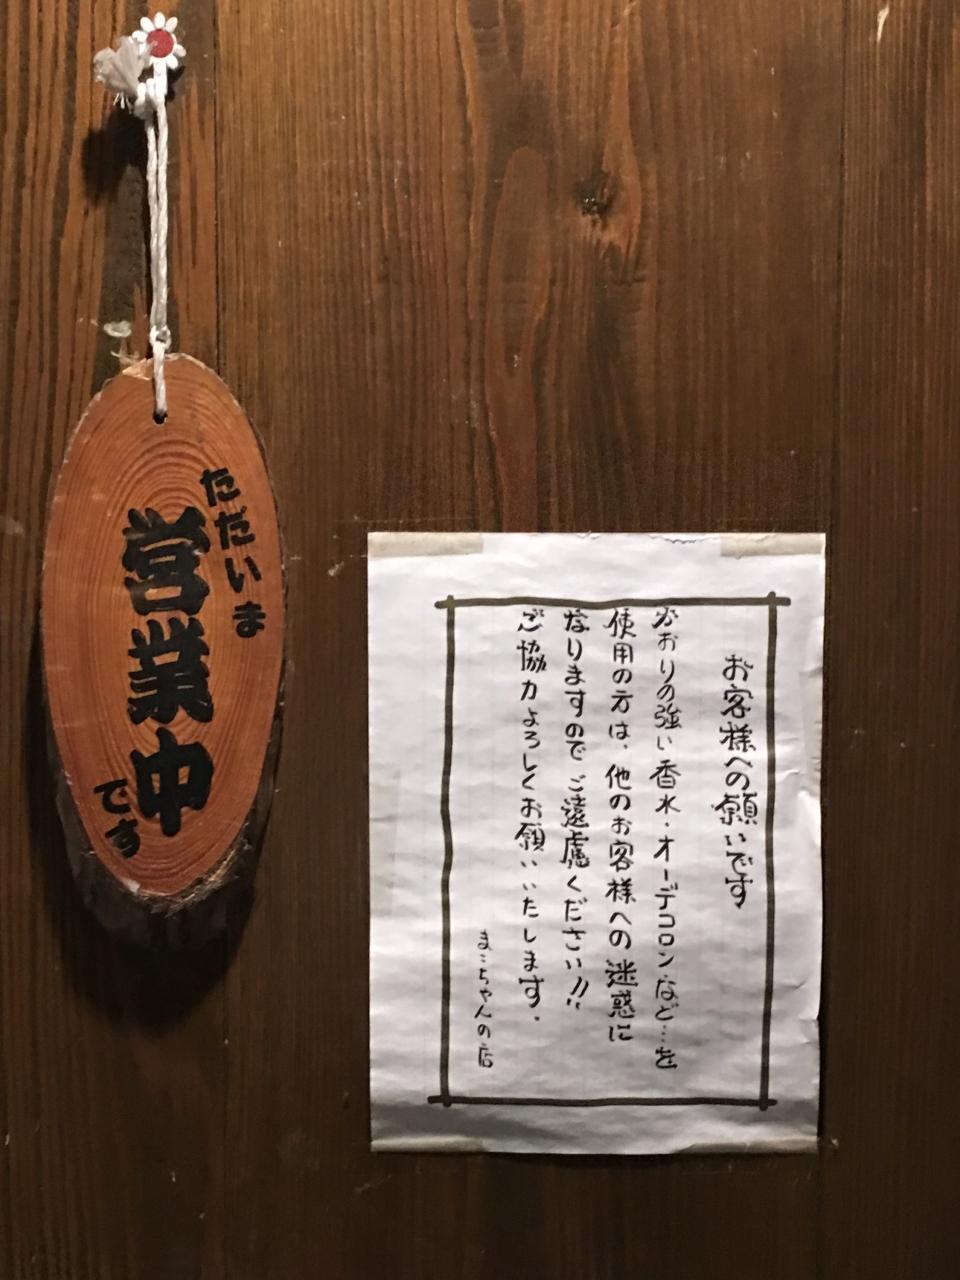 ただいま
営業中
です
お客様への願いです
かおりの強い香水・オーデコロンなど…を
使用の方は、他のお客様への迷惑に
なりますのでご遠慮ください!!
ご協力よろしくお願いいたします。
まこちゃんの店